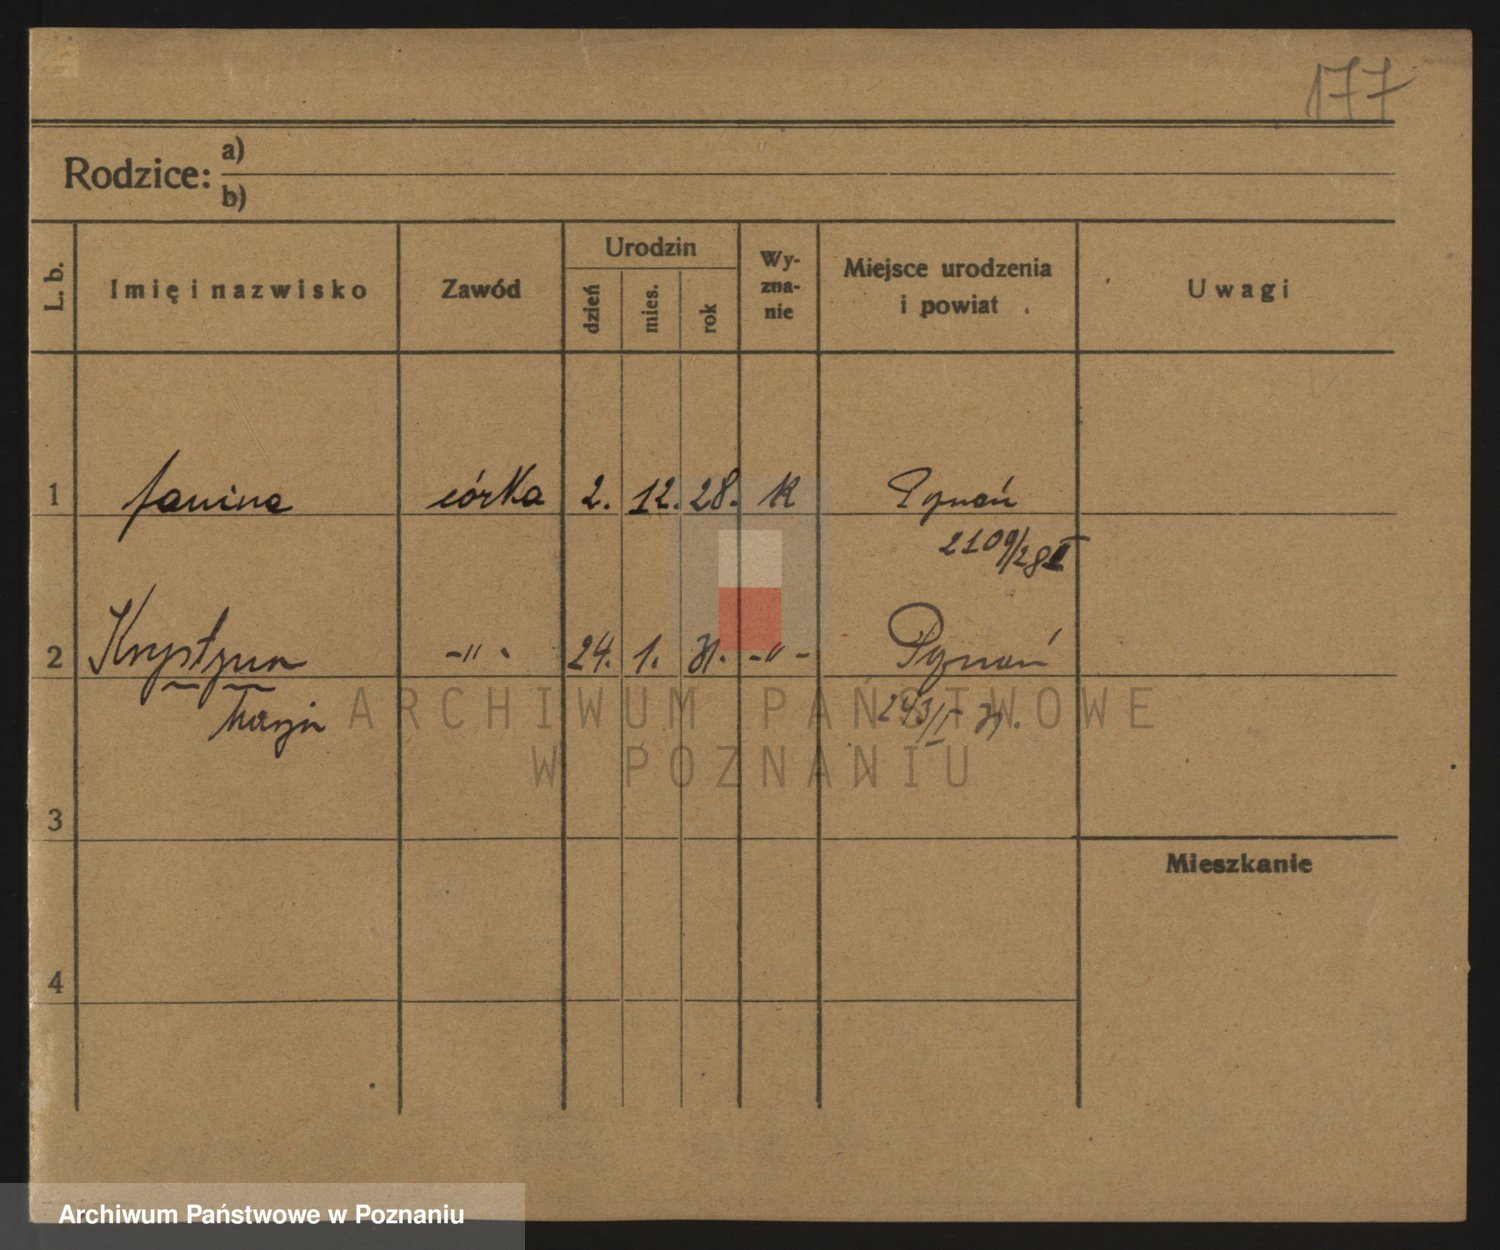 177
Rodzice: a)
b)
L. b.
Imię i nazwisko
Zawód
Urodzin
dzień
mies.
rok
Wy-
zna-
nie
Miejsce urodzenia
i powiat
Uwagi
1 Janina córka 2. 12. 28. K Poznań
2109/28 II
2 Krystyna -"- 24. 1. 31. -"- Poznań
Marja 243/I 31.
3
Mieszkanie
4
ARCHIWUM PAŃSTWOWE
W POZNANIU
Archiwum Państwowe w Poznaniu